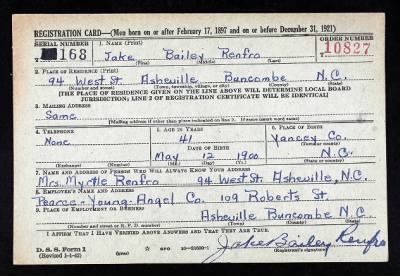 REGISTRATION CARD—(Men born on or after February 17, 1897 and on or before December 31, 1921)
SERIAL NUMBER 1. NAME (Print) ORDER NUMBER
168 Jake Bailey Renfro 10827
(First) (Middle) (Last)
2. PLACE OF RESIDENCE (Print)
94 West St. Asheville Buncombe N.C.
(Number and street) (Town, township, village, or city) (County) (State)
[THE PLACE OF RESIDENCE GIVEN ON THE LINE ABOVE WILL DETERMINE LOCAL BOARD
JURISDICTION; LINE 2 OF REGISTRATION CERTIFICATE WILL BE IDENTICAL]
3. MAILING ADDRESS
Same
[Mailing address if other than place indicated on line 2. If same insert word same]
4. TELEPHONE 5. AGE IN YEARS 6. PLACE OF BIRTH
None 41 Yancey Co.
DATE OF BIRTH (Town or county)
May 12 1900 N.C.
(Exchange) (Number) (Mo.) (Day) (Yr.) (State or country)
7. NAME AND ADDRESS OF PERSON WHO WILL ALWAYS KNOW YOUR ADDRESS
Mrs. Myrtle Renfro 94 West St. Asheville, N.C.
8. EMPLOYER'S NAME AND ADDRESS
Pearce-Young-Angel Co. 109 Roberts St.
9. PLACE OF EMPLOYMENT OR BUSINESS
Asheville Buncombe N.C.
(Number and street or R. F. D. number) (Town) (County) (State)
I AFFIRM THAT I HAVE VERIFIED ABOVE ANSWERS AND THAT THEY ARE TRUE.
D. S. S. Form 1
(Revised 1-1-42) (over) Jake Bailey Renfro